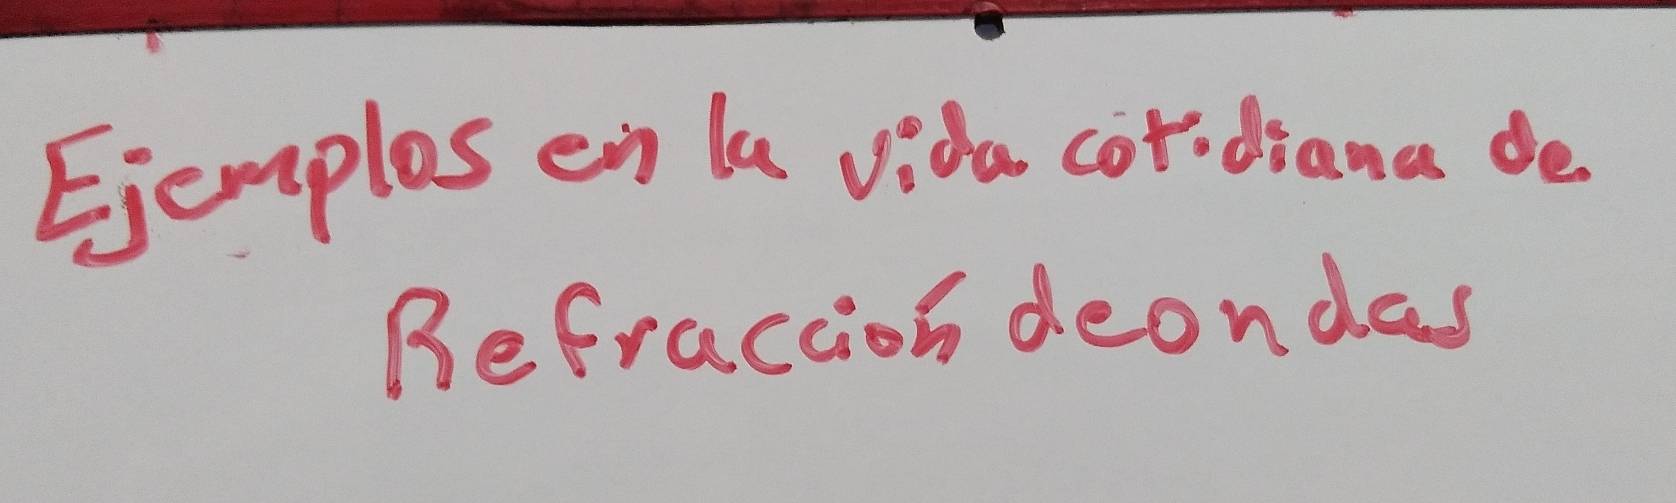 Ejemplos en la vida cotidiana de
Refracción de ondas